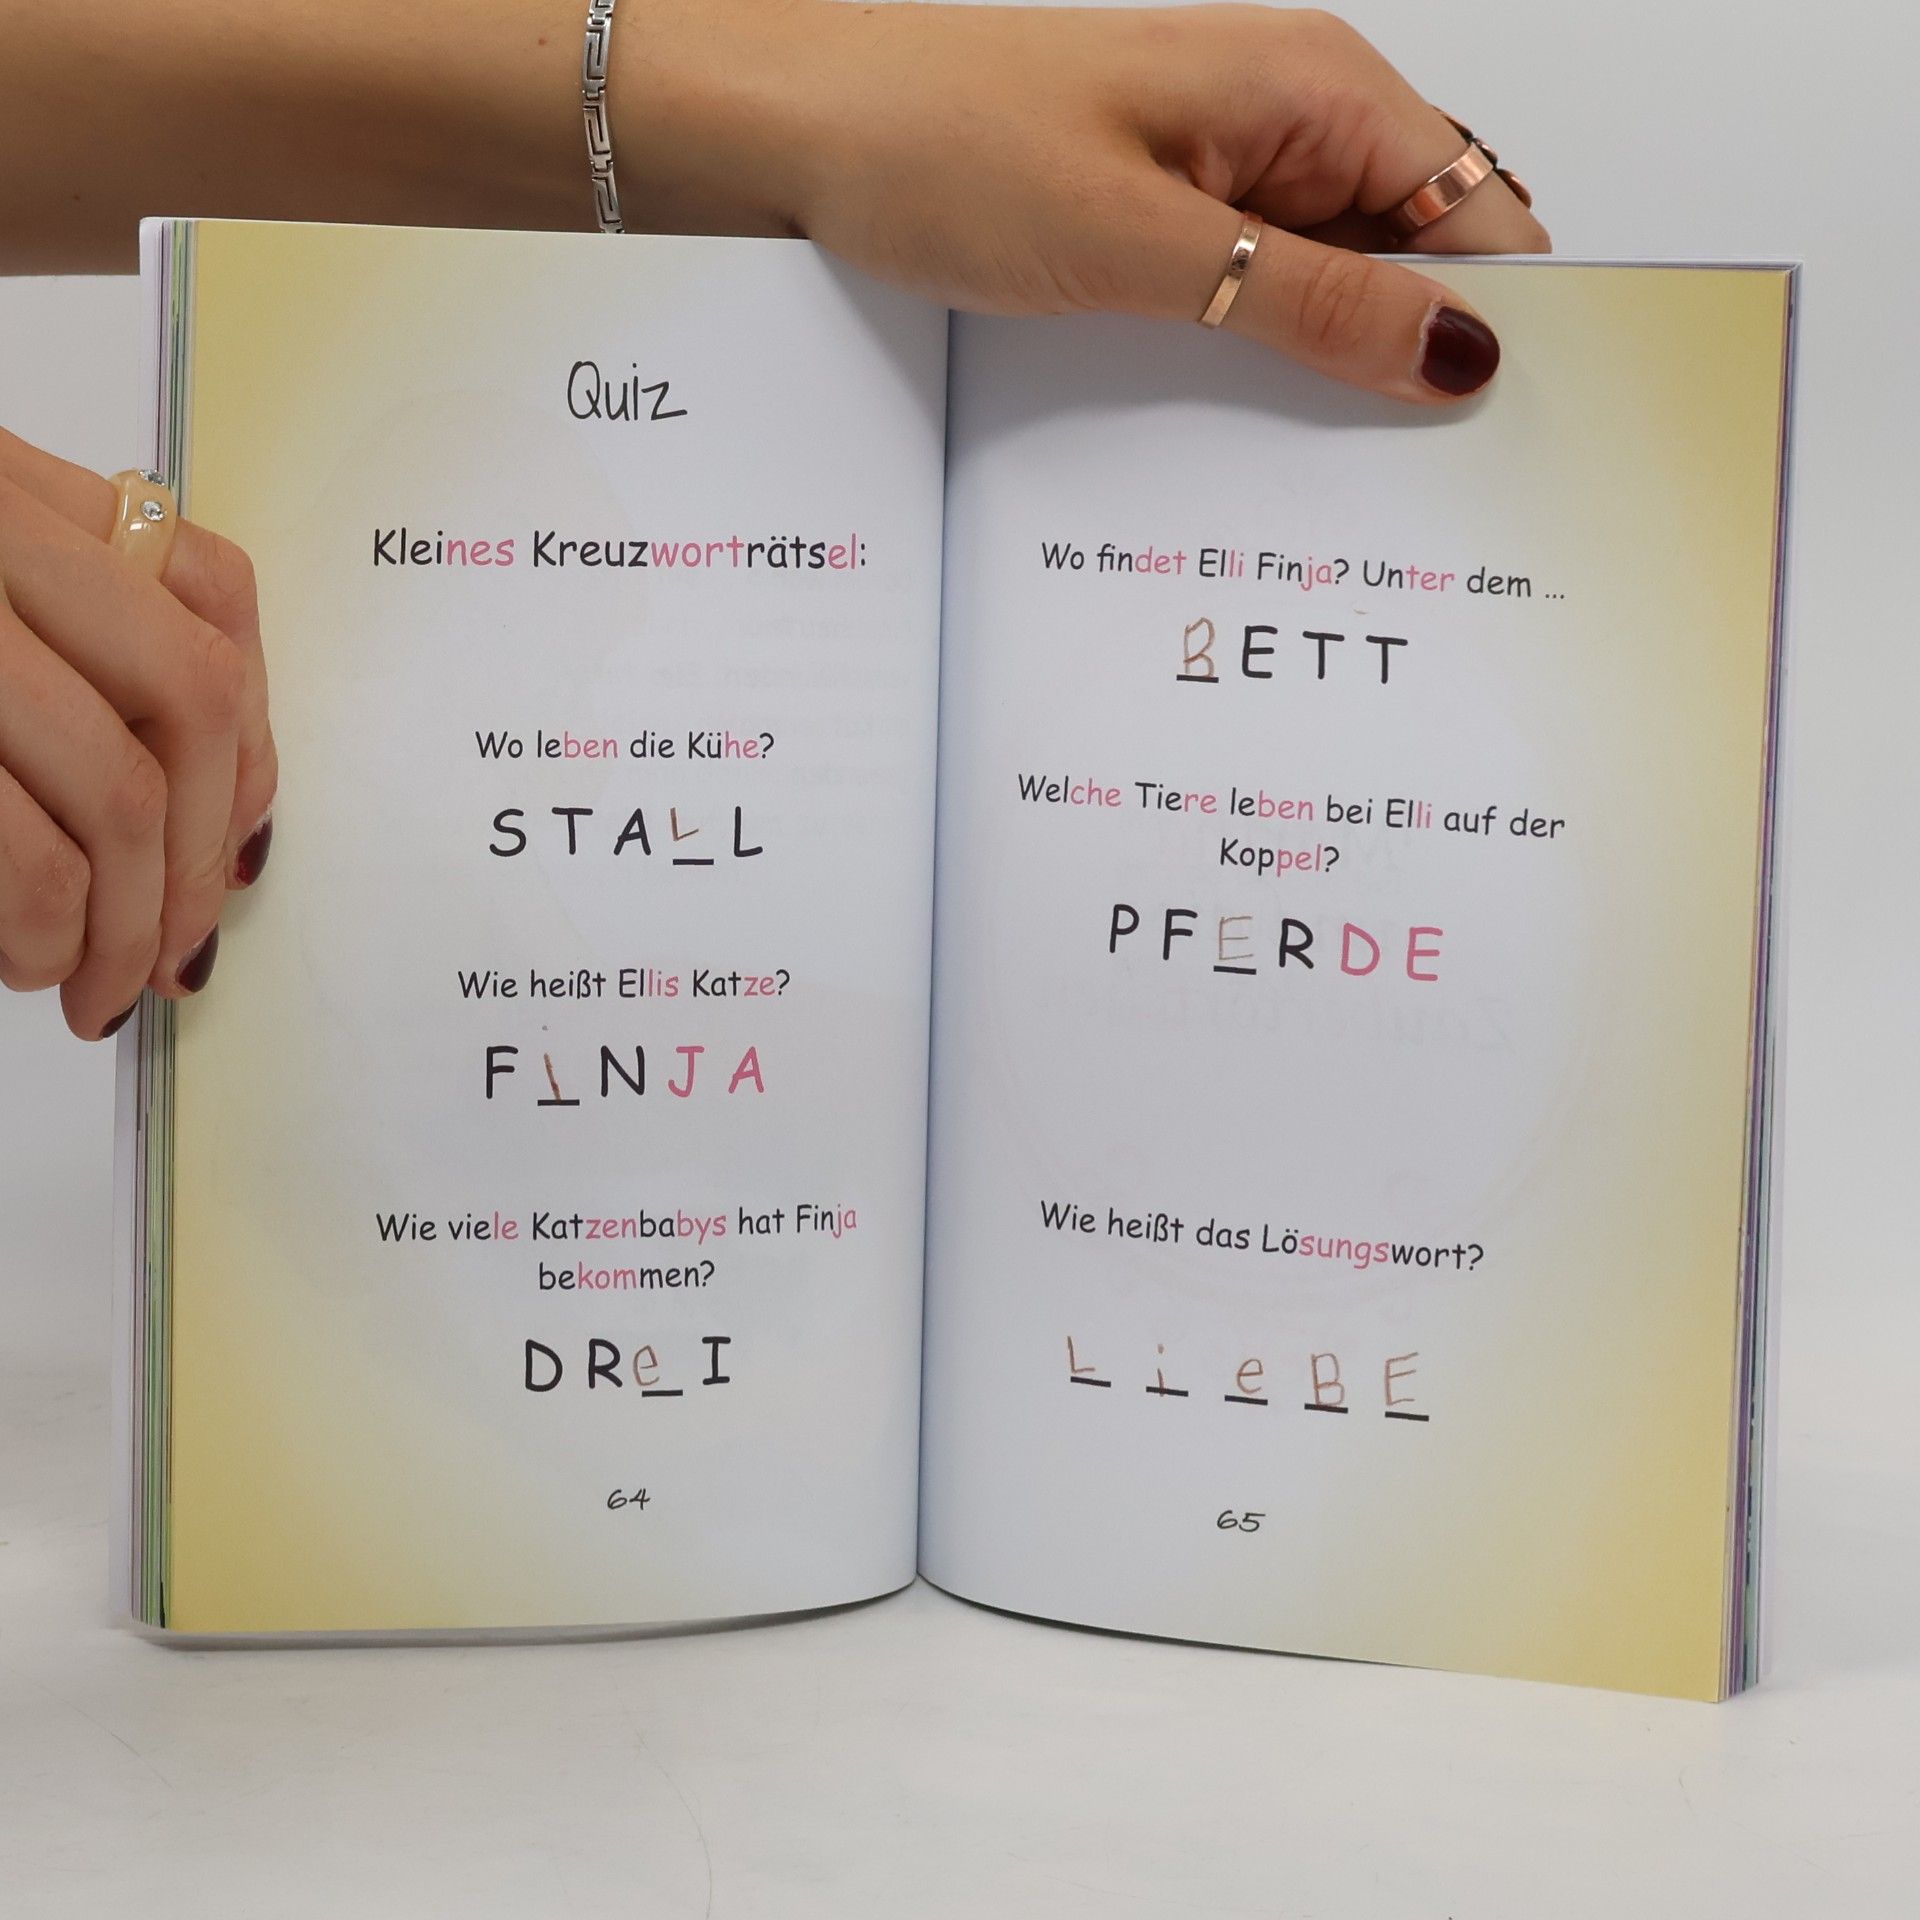 Quiz
Kleines Kreuzworträtsel:
Wo leben die Kühe?
S T A L L
Wie heißt Ellis Katze?
F i N J A
Wie viele Katzenbabys hat Finja
bekommen?
D R e I
64
Wo findet Elli Finja? Unter dem ...
B E T T
Welche Tiere leben bei Elli auf der
Koppel?
P F E R D E
Wie heißt das Lösungswort?
L i e B E
65